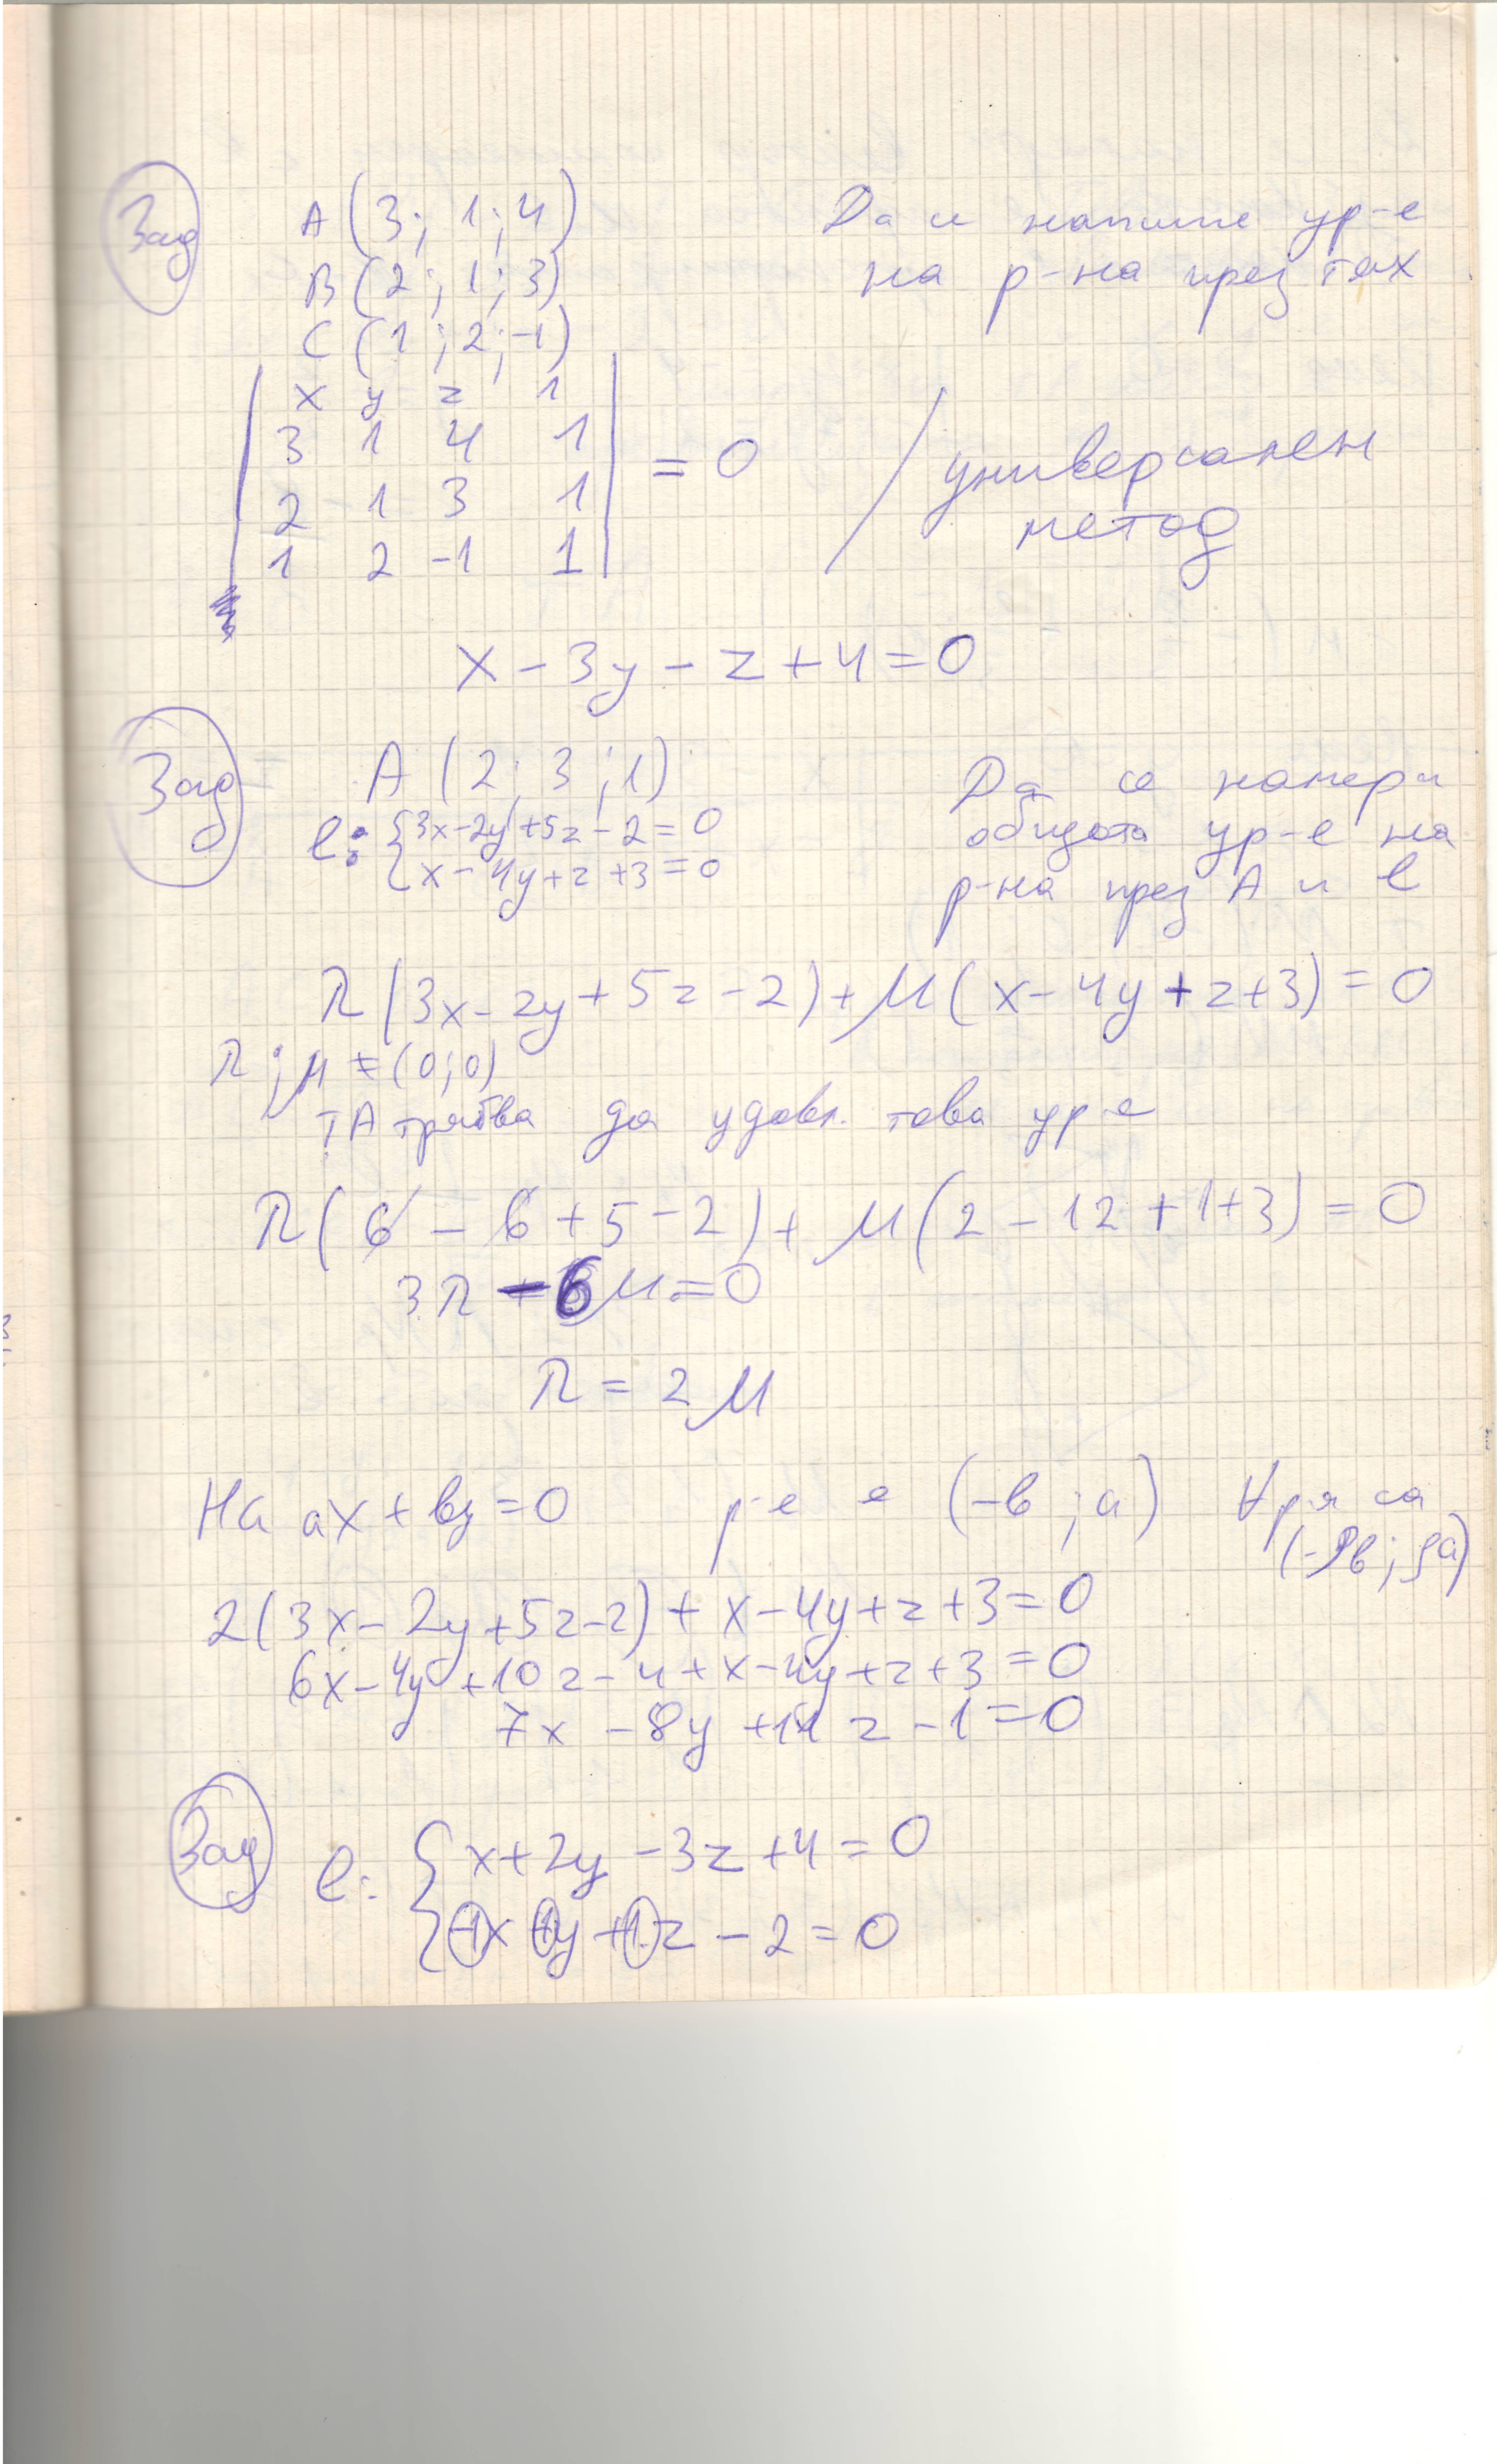 Зад
A (3; 1; 4) Да се напише ур-е
B (2; 1; 3) на р-на през тях
C (1; 2; -1)
| x y z 1 |
| 3 1 4 1 | = 0 / универсален
| 2 1 3 1 | метод
| 1 2 -1 1 |
x - 3y - z + 4 = 0
Зад
A (2; 3; 1) Да се намери
l: { 3x - 2y + 5z - 2 = 0 общото ур-е на
{ x - 4y + z + 3 = 0 р-на през A и l
λ(3x - 2y + 5z - 2) + μ(x - 4y + z + 3) = 0
λ; μ ≠ (0; 0)
тА трябва да удовл. това ур-е
λ(6 - 6 + 5 - 2) + μ(2 - 12 + 1 + 3) = 0
3λ - 6μ = 0
λ = 2μ
На ax + by = 0 р-е е (-b; a) ∀ р-я са
(-ρb; ρa)
2(3x - 2y + 5z - 2) + x - 4y + z + 3 = 0
6x - 4y + 10z - 4 + x - 4y + z + 3 = 0
7x - 8y + 11z - 1 = 0
Зад
l: { x + 2y - 3z + 4 = 0
{ -1x +1y +1z - 2 = 0